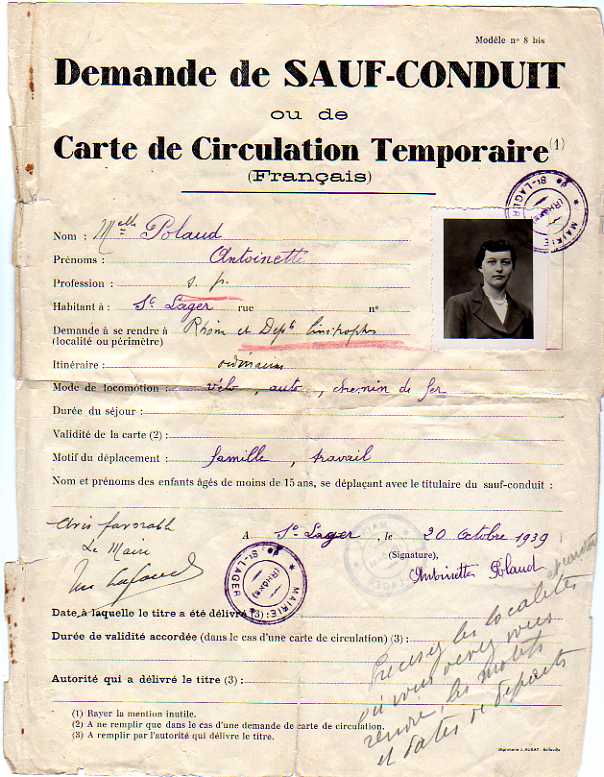 Modèle n° 8 bis
Demande de SAUF-CONDUIT
ou de
Carte de Circulation Temporaire (1)
(Français)
Nom : Melle Polaud
Prénoms : Antoinette
Profession : s. p.
Habitant à : St Lager rue n°
Demande à se rendre à Rhône et Depts limitrophes
(localité ou périmètre)
Itinéraire : ordinaire
Mode de locomotion : vélo, auto, chemin de fer
Durée du séjour :
Validité de la carte (2) :
Motif du déplacement : famille, travail
Nom et prénoms des enfants âgés de moins de 15 ans, se déplaçant avec le titulaire du sauf-conduit :
Avis favorable
Le Maire
A St Lager, le 20 Octobre 1939
(Signature),
Antoinette Polaud
MAIRIE de St-LAGER (RHÔNE)
Date à laquelle le titre a été délivré (3) :
Durée de validité accordée (dans le cas d'une carte de circulation) (3) :
Autorité qui a délivré le titre (3) :
Précisez les localités
où vous devez vous
rendre, les motifs
et dates de départs
(1) Rayer la mention inutile.
(2) A ne remplir que dans le cas d'une demande de carte de circulation.
(3) A remplir par l'autorité qui délivre le titre.